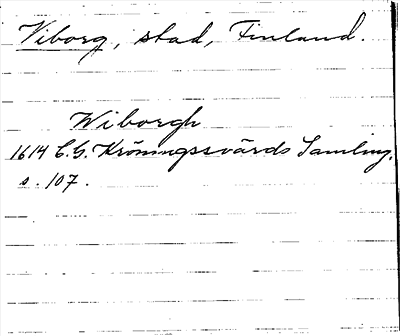 Viborg, stad, Finland.
Wiborgh
1614 C.G. Kröningssvärds Samling,
s. 107.